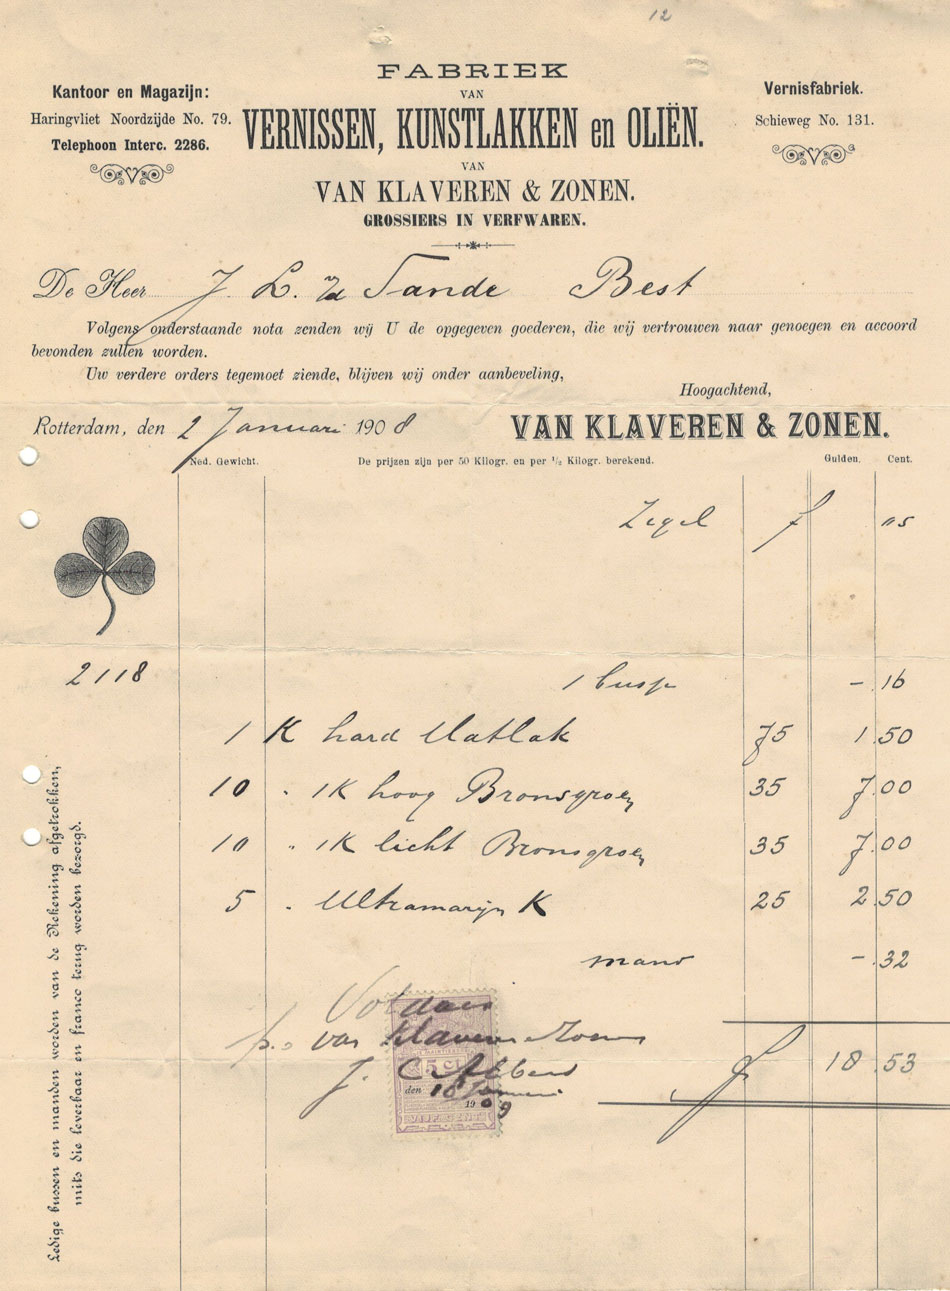 12
FABRIEK
VAN
VERNISSEN, KUNSTLAKKEN en OLIËN.
VAN
VAN KLAVEREN & ZONEN.
GROSSIERS IN VERFWAREN.
Kantoor en Magazijn:
Haringvliet Noordzijde No. 79.
Telephoon Interc. 2286.
Vernisfabriek.
Schieweg No. 131.
De Heer J. L. vd Sande Best
Volgens onderstaande nota zenden wij U de opgegeven goederen, die wij vertrouwen naar genoegen en accoord
bevonden zullen worden.
Uw verdere orders tegemoet ziende, blijven wij onder aanbeveling,
Hoogachtend,
Rotterdam, den 2 Januari 1908
VAN KLAVEREN & ZONEN.
Ned. Gewicht. De prijzen zijn per 50 Kilogr. en per ½ Kilogr. berekend. Gulden. Cent.
Zegel f "05
2118 1 busje -.16
1 K hard Matlak 75 1.50
10 " 1K hoog Bronsgroen 35 7.00
10 " 1K licht Bronsgroen 35 7.00
5 " Ultramarijn K 25 2.50
mand -.32
Voldaan
p.o van Klaveren Zonen
f 18.53
J. C.
5 CT
den 18 Januari
1909
VIJF CENT
Ledige bussen en manden worden van de Rekening afgetrokken,
mits die leverbaar en franco terug worden bezorgd.